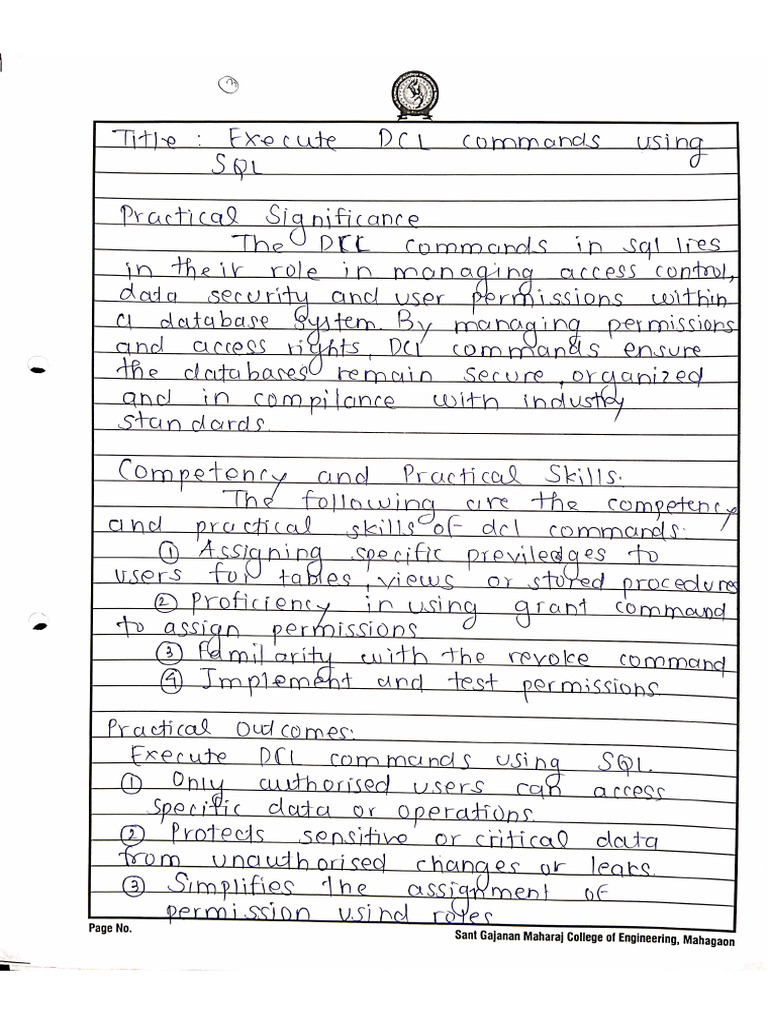 Title : Execute DCL commands using
SQL
Practical Significance
The DCL commands in sql lies
in their role in managing access control,
data security and user permissions within
a database system. By managing permissions
and access rights, DCL commands ensure
the databases remain secure, organized
and in compilance with industry
standards.
Competency and Practical Skills.
The following are the competency
and practical skills of dcl commands:
① Assigning specific previledges to
users for tables, views or stored procedures
② Proficiency in using grant command
to assign permissions
③ Familarity with the revoke command
④ Implement and test permissions
Practical Outcomes:
Execute DCL commands using SQL.
① Only authorised users can access
specific data or operations
② Protects sensitive or critical data
from unauthorised changes or leaks
③ Simplifies the assignment of
permission usind roles
Page No.
Sant Gajanan Maharaj College of Engineering, Mahagaon